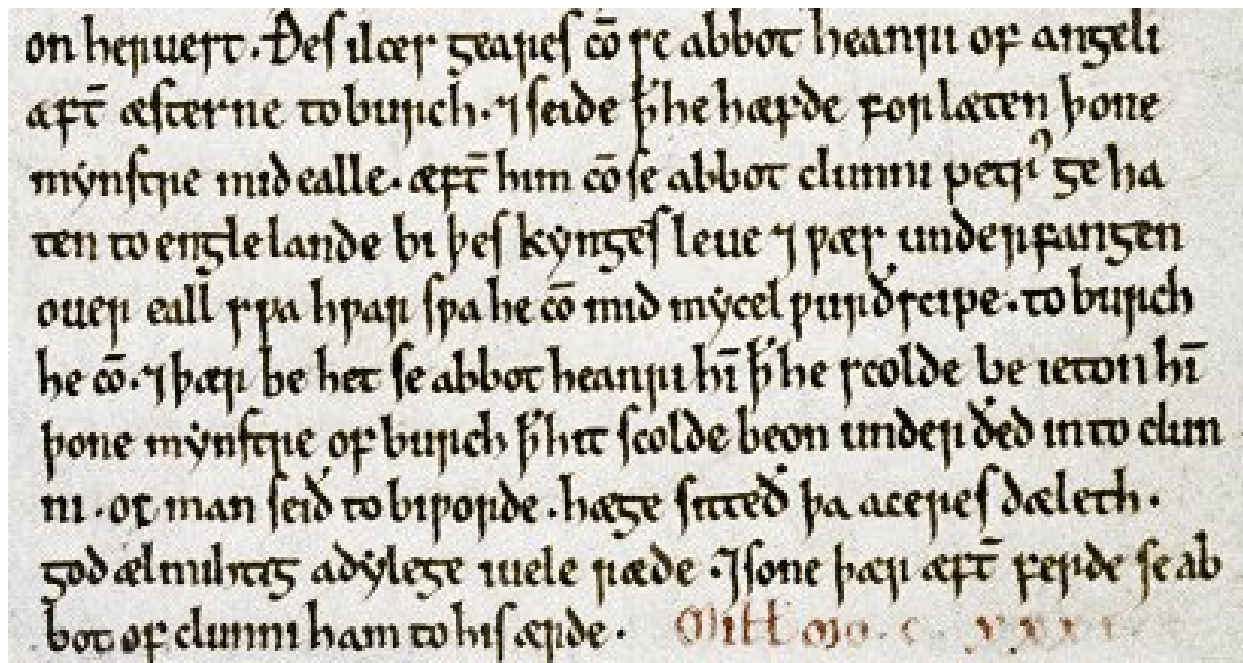 on heruest. Ðes ilces geares cō se abbot heanri of angeli
æft̄ æsterne to burch. ⁊ seide ꝥ he hæfde forlæten þone
mynstre mid ealle. æft̄ him cō se abbot clunni petrꝰ ge ha
ten to englelande bi þes kynges leue ⁊ ƿæs underfangen
ouer eall sƿa hƿar sƿa he cō mid mycel ƿurðscipe. to burch
he cō. ⁊ þær be het se abbot heanri hī ꝥ he scolde be ieton hī
þone mynstre of burch ꝥ hit scolde beon under ðed into clun
ni. oc man seið to biƿorde. hæge sitteð þa aceres dæleth.
god ælmihtig adylege iuele ræde. ⁊ sone þær æft̄ ferde se ab
bot of clunni ham to his ærde. Mill̄mo. c. xxxi.